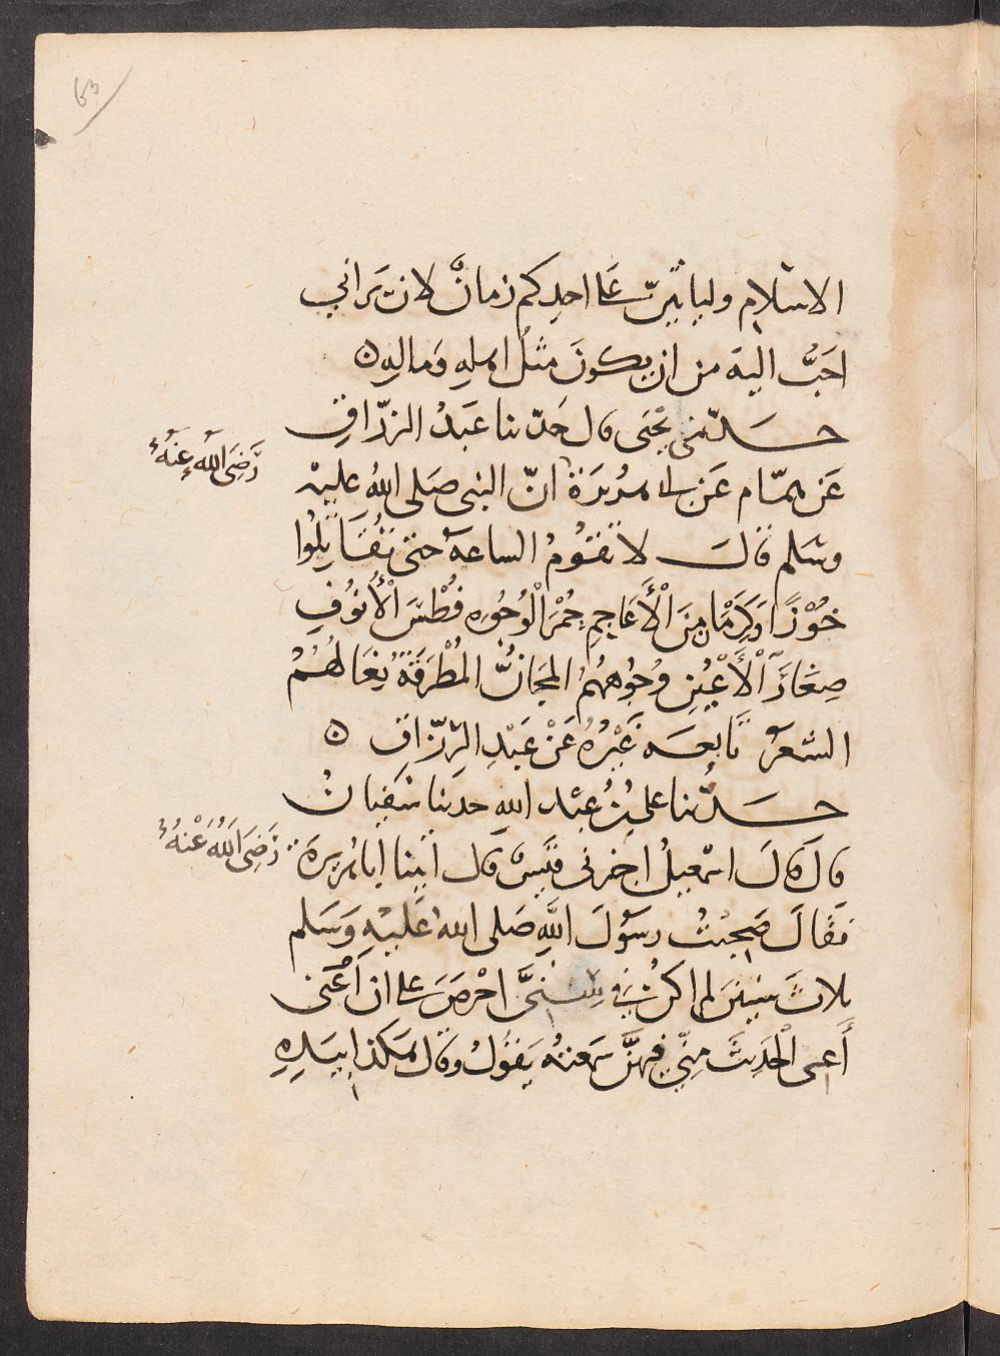 53
الاسلام ولياتينّ على احدكم زمانٌ لان يراني
احَبُّ اليه من ان يكونَ مثلُ اهلهِ وَمالهِ ه
حدّثني يحيى قال حَدّثنا عَبدُ الرزّاقِ
عَن همّام عَن ابي هريرَة انّ النبي صَلى اللهُ عليه
رَّضِيَ اللهُ عنهُ
وسَلم قال لا تقومُ الساعة حتى تُقاتِلُوا
خُوْزًا وَكَرْمَان مِنَ الْأَعَاجِمِ حُمْرَ الْوُجُوهِ فُطْسَ الْأُنوُفِ
صِغَارَ الْأَعْيُنِ وُجُوههُمُ المَجَانُّ المُطْرَقَةُ نِعَالُهُمُ
الشعَر تَابعَه غَيْرُهُ عَنْ عَبْدِ الرّزّاقِ ه
حدّثنا علي بْنُ عبْد اللهِ حدثنا سُفيانُ
قال قالَ اسمعيلُ اخبرني قيسٌ قال اتينا ابا هُريرةَ
رَضِيَ اللهُ عَنْهُ
فقَالَ صَحِبْتُ رسوُلَ اللَّهِ صَلى اللهُ عَليْهِ وَسَلم
ثلاثَ سِنينَ لم اكنْ في سِنِيَّ احْرَصَ على ان
أَعِىَ الْحَدِيثَ مِنّي فيهنَّ سَمعتهُ يَقوُلُ وقال هَكذا بيَدِهِ